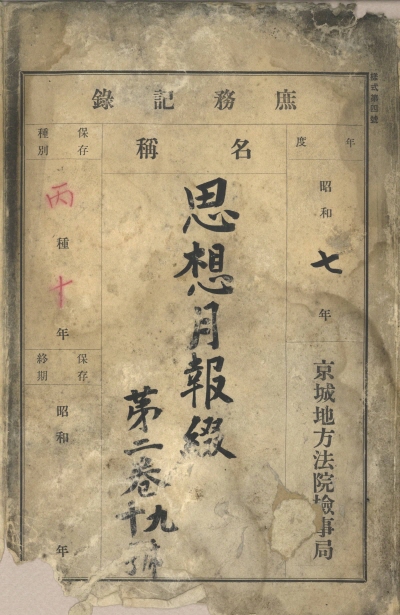 樣式第四號
庶務記錄
年度
昭和七年
京城地方法院檢事局
名稱
思想月報綴
第二卷
九
十
號
保存
種別
丙種十年
保存
終期
昭和 年